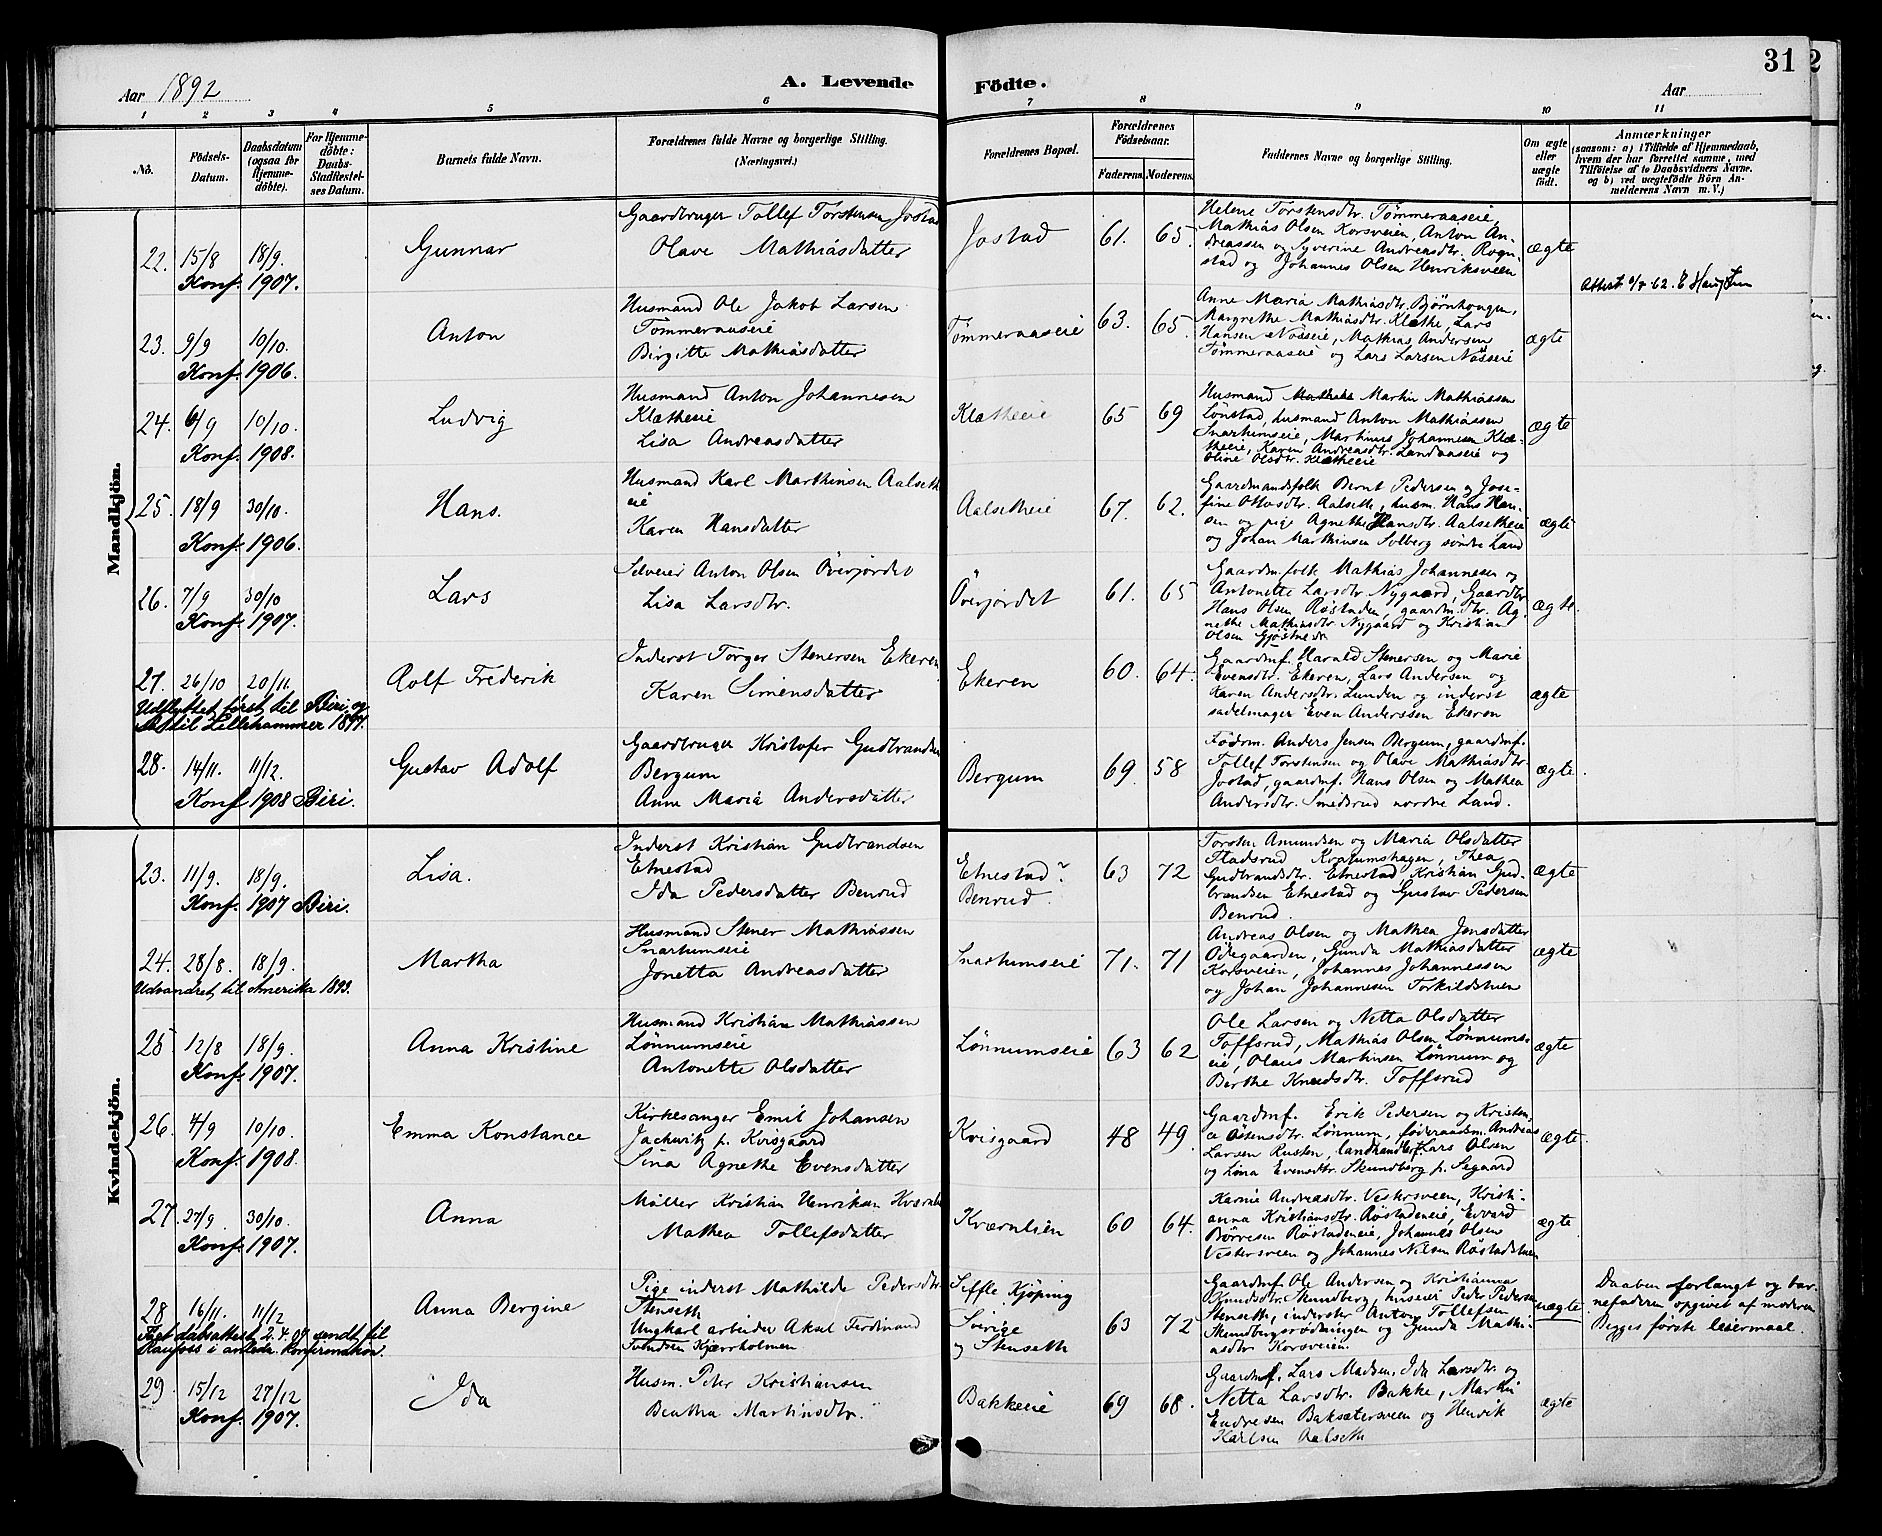 Aar 1892
A. Levende Födte.
31
Aar
1 2 3 4 5 6 7 8 9 10 11
No.
Födsels-Datum.
Daabsdatum (ogsaa for Hjemmedöbte).
For Hjemmedöbte: Daabs-Stadfæstelses Datum.
Barnets fulde Navn.
Forældrenes fulde Navne og borgerlige Stilling.
(Næringsvei.)
Forældrenes Bopæl.
Forældrenes Födselsaar.
Faderens. Moderens.
Faddernes Navne og borgerlige Stilling.
Om ægte eller uægte födt.
Anmærkninger
(saasom: a) i Tilfælde af Hjemmedaab, hvem der har forrettet samme, med Tilföielse af to Daabsvidners Navne. og b) ved uægtefödte Börn Anmelderens Navn m. V.)
Mandkjön.
22. 15/8 18/9. Gunnar
Konf. 1907.
Gaardbruger Tollef Torstensen Jostad
Olave Mathiasdatter
Jostad 61. 65.
Helene Torstensdtr. Tømmeraaseie,
Mathias Olsen Korsveien, Anton An-
dreassen og Syverine Andreasdtr. Rogn-
stad og Johannes Olsen Henriksveen
ægte
23. 9/9 10/10. Anton
Konf. 1906.
Husmand Ole Jakob Larsen
Tömmeraaseie
Birgitte Mathiasdatter
Tömmeraaseie 63. 65.
Anne Maria Mathiasdtr. Bjørnhaugen,
Margrethe Mathiasdtr. Klæthe, Lars
Hansen Nøsseie, Mathias Andersen
Tömmeraaseie og Lars Larsen Nøsseie
ægte
24. 6/9 10/10. Ludvig
Konf. 1908.
Husmand Anton Johannesen
Klætheeie
Lisa Andreasdatter
Klætheeie 65 69
Husmand Martin Mathiassen
Lönstad, husmand Anton Mathiassen
Snartumseie, Martinus Johannesen Klæ-
theeie, Karen Andreasdtr. Landaaseie og
Oline Olsdtr. Klætheeie
ægte
25. 18/9 30/10. Hans.
Konf. 1906.
Husmand Karl Marthinsen Aalseth
eie
Karen Hansdatter
Aalsetheie 67. 62.
Gaardmandsfolk Bernt Pedersen og Jose-
fine Ottosdtr. Aalseth, husm. Hans Han-
sen og pige Agnethe Hansdtr. Aalsetheie
og Johan Marthinsen Solberg søndre Land
ægte
26. 7/9 30/10 Lars
Konf. 1907.
Selveier Anton Olsen Överjordet
Lisa Larsdtr.
Överjordet 61. 65
Gaardm.folk Mathias Johannesen og
Antonette Larsdtr Nygaard, Gaardbr
Hans Olsen Røstaden, gaardm.dtr. Ag-
nethe Mathiasdtr Nygaard og Kristian
Olsen
ægte.
27. 26/10 20/11. Rolf Frederik
Udflyttet først til Biri og
til Lillehammer 1897.
Inderst Torger Stenersen Ekeren
Karen Simensdatter
Ekeren 60. 64.
Gaardmf. Harald Stenersen og Marie
Evensdtr. Ekeren, Lars Andersen og
Karen Andersdtr. Lunden og inderst
sadelmager Even Anderssen Ekeren
ægte
28. 14/11. 11/12. Gustav Adolf
Konf 1908 Biri.
Gaardbruger Kristofer Gudbrandsen
Bergum
Anne Maria Andersdatter
Bergum 69. 58
Födrm. Anders Jensen Bergum, gaardmf.
Tollef Torstensen og Olave Mathiasdtr.
Jostad, gaardmf. Hans Olsen og Mathea
Andersdtr. Smedsrud nordre Land.
ægte.
Kvindekjön.
23. 11/9. 18/9. Lisa.
Konf. 1907 Biri.
Inderst Kristian Gudbrandsen
Etnestad
Ida Pedersdatter Benrud
Etnestad
Benrud. 63 72
Torsten Amundsen og Maria Olsdatter
Stadsrud Thea
Gudbrandsdtr. Etnestad, Kristian Gud-
brandsen Etnestad og Gustav Pedersen
Benrud.
ægte
24. 28/8. 18/9. Martha
Udvandret til Amerika 1893.
Husmand Stener Mathiassen
Snartumseie
Jonetta Andreasdatter
Snartumseie 71. 71
Andreas Olsen og Mathea Jensdatter
Ödegaarden, Gunda Mathiasdatter
Korsveien, Johannes Johannessen
og Johan Johannesen Torkildstuen
ægte
25 12/8 18/9. Anna Kristine
Konf. 1907.
Husmand Kristian Mathiassen
Lønnumseie
Antonette Olsdatter
Lönnumseie 63 62
Ole Larsen og Netta Olsdatter
Toffsrud, Mathias Olsen Lønnums-
eie, Olaus Martinsen Lönnum og
Berthe Knudsdtr. Toffsrud
ægte
26. 4/9 10/10. Emma Konstance
Konf. 1908.
Kirkesanger Emil Johansen
Jachwitz p. Kvisgaard
Sina Agnethe Evensdatter
Kvisgaard 48 49.
Gaardmf. Erik Pedersen og Kristen-
ce Østensdtr. Lönnum, føderaadsm. Andreas
Larsen Rusten, landhandler Lars Olsen
og Lina Evensdtr. Skundberg p. Segaard
ægte.
27. 27/9. 30/10. Anna
Konf. 1907.
Møller Kristian Henriksen Kværnlie
Mathea Tollefsdatter
Kværnlien 60 64.
Karnie Andreasdtr. Vestersveen, Kristi-
anna Kristiansdtr. Røstadeneie, Edvard
Børresen Røstadeneie, Johannes Olsen
Vestersveen og Johannes Nilsen Røstadstuen
ægte
28 16/11. 11/12 Anna Bergine
sendt til
Raufoss i anledn. Konfirmation.
Pige inderst Mathilde Pedersdtr.
Stenseth
Ungkarl arbeider Aksel Ferdinand
Svendsen Kjærrholmen
Siffle Kjöping
Sverige
og Stenseth 63 72
Gaardmf. Ole Andersen og Kristianna
Knudsdtr. Skundberg, huseier Peder Pedersen
Stenseth, inderster Anton Tollefsen
Skundbergsrødningen og Gunda Mathi-
asdtr Korsveien.
uægte
Daaben forlangt og bar-
nefaderen opgivet af moderen.
Begges første leiermaal.
29. 15/12 27/12 Ida
Konf. 1907.
Husm. Peter Kristiansen
Bertha Martinsdtr.
Bakkeeie 69 68.
Gaardmf. Lars Madsen, Ida Larsdtr. og
Netta Larsdtr. Bakke, Martin
Endresen Baksætersveen og Henrik
Karlsen Aalseth
ægte